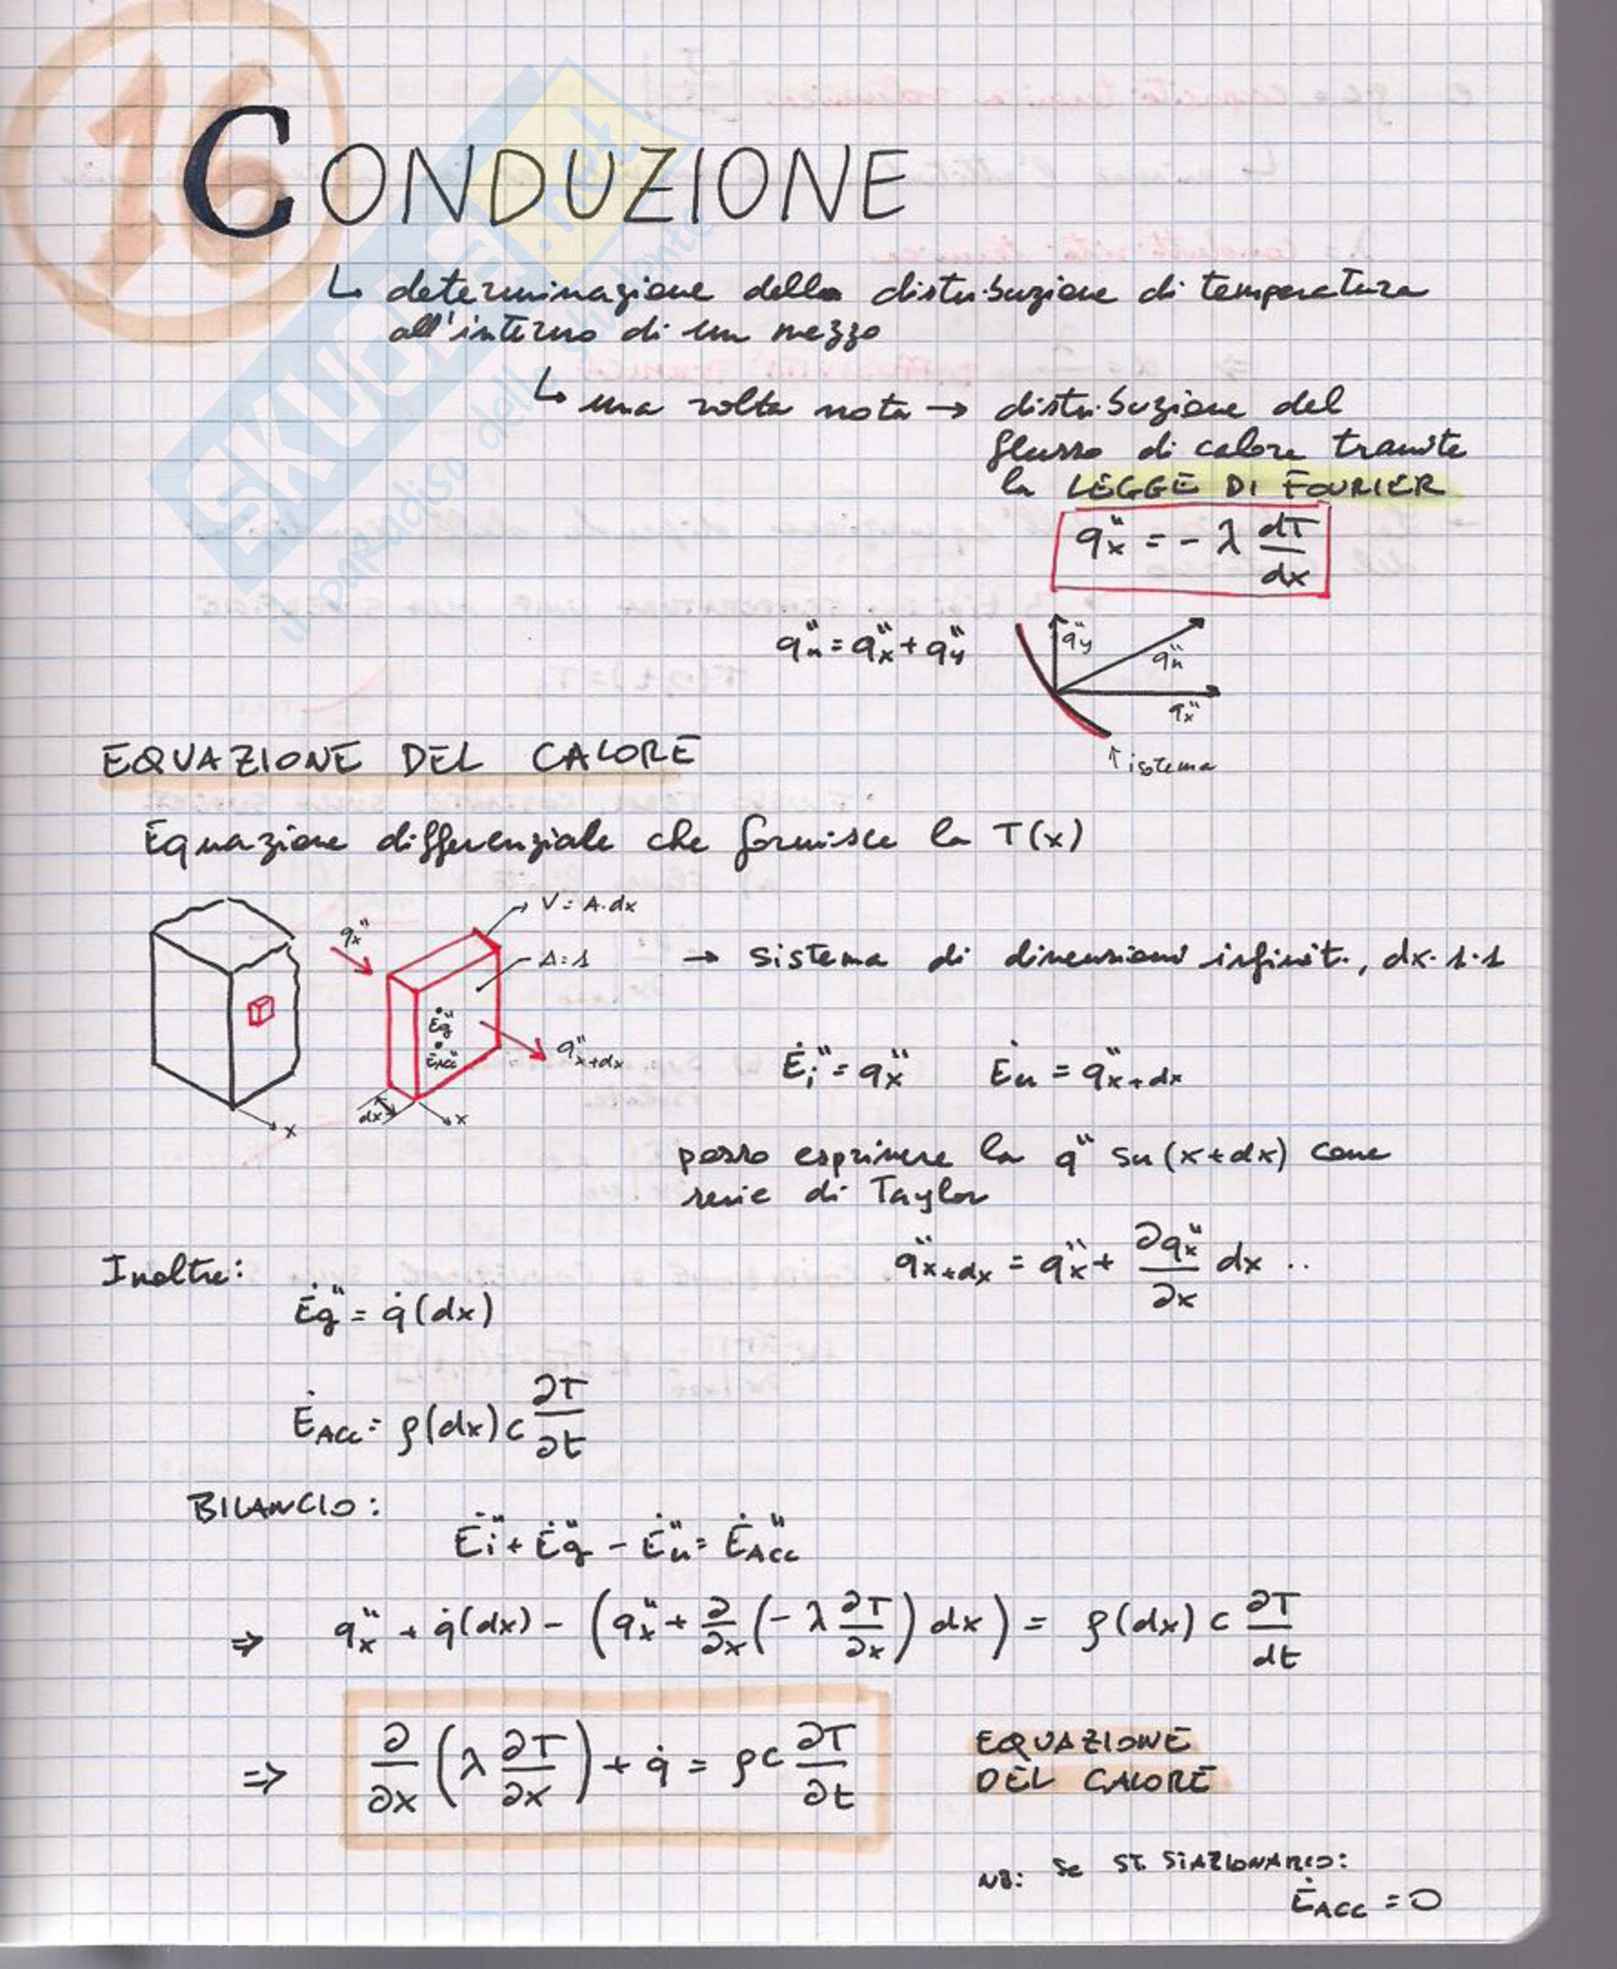 16
CONDUZIONE
↳ determinazione della distribuzione di temperatura
all'interno di un mezzo
↳ una volta nota → distribuzione del
flusso di calore tramite
la LEGGE DI FOURIER
q"x = - λ dT/dx
q"n = q"x + q"y
q"y
q"n
q"x
↑ isotema
EQUAZIONE DEL CALORE
Equazione differenziale che fornisce la T(x)
V = A·dx
q"x
A=1
→ sistema di dimensioni infinit., dx·1·1
Ėg"
ĖACC"
q"x+dx
Ėi" = q"x Ėu = q"x+dx
dx
x
x
posso esprimere la q" su (x+dx) come
serie di Taylor
q"x+dx = q"x + ∂q"x/∂x dx ..
Inoltre:
Ėg" = q̇(dx)
ĖACC = ρ(dx) c ∂T/∂t
BILANCIO:
Ėi" + Ėg" - Ėu" = ĖACC"
⇒ q"x + q̇(dx) - (q"x + ∂/∂x (- λ ∂T/∂x) dx) = ρ(dx) c ∂T/dt
⇒ ∂/∂x (λ ∂T/∂x) + q̇ = ρc ∂T/∂t
EQUAZIONE
DEL CALORE
NB: Se ST. STAZIONARIO:
ĖACC = 0
SKUOLA.net
il paradiso dello studente